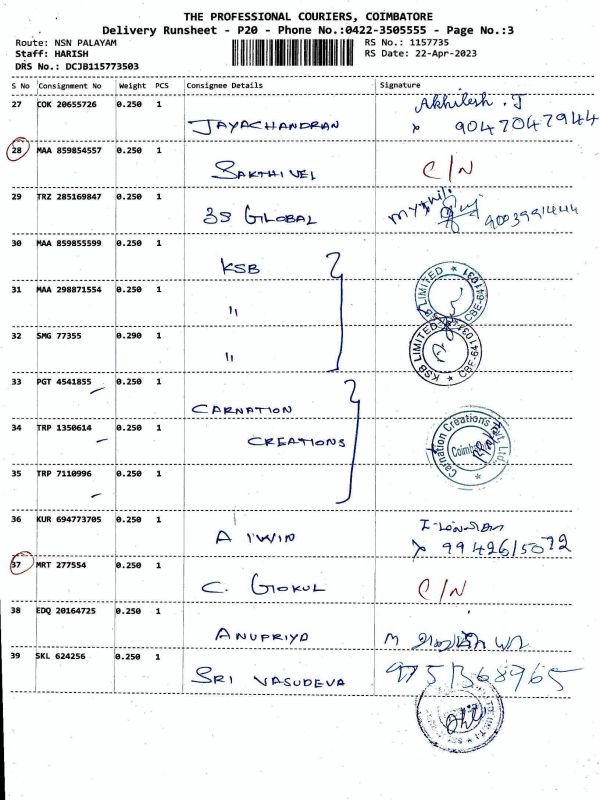 THE PROFESSIONAL COURIERS, COIMBATORE
Delivery Runsheet - P20 - Phone No.:0422-3505555 - Page No.:3
Route: NSN PALAYAM RS No.: 1157735
Staff: HARISH RS Date: 22-Apr-2023
DRS No.: DCJB115773503
S No Consignment No Weight PCS Consignee Details Signature
27 COK 20655726 0.250 1 JAYACHANDRAN Akhilesh . J 9047047944
28 MAA 859854557 0.250 1 SAKTHIVEL C/N
29 TRZ 285169847 0.250 1 3S GLOBAL
30 MAA 859855599 0.250 1 KSB
31 MAA 298871554 0.250 1 "
KSB LIMITED * CBE-641031 *
32 SMG 77355 0.290 1 "
KSB LIMITED * CBE-641031 *
33 PGT 4541855 0.250 1 CARNATION
34 TRP 1350614 0.250 1 CREATIONS
Carnation Creations Pvt. Ltd., * Coimbatore
35 TRP 7110996 0.250 1
36 KUR 694773705 0.250 1 AIWIN 9942615072
37 MRT 277554 0.250 1 C. GOKUL C/N
38 EDQ 20164725 0.250 1 ANUPRIYA M
39 SKL 624256 0.250 1 SRI VASUDEVA 9751368965